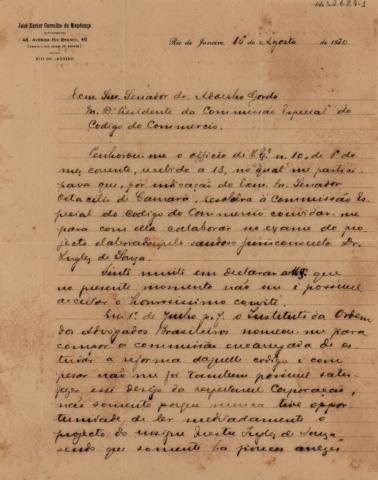 José Xavier Carvalho de Mendonça
48, AVENIDA RIO BRANCO, 48
RIO DE JANEIRO
Rio de Janeiro, 16 de Agosto de 1920
Exm. Snr. Senador dr. Adolpho Gordo
M. D. Presidente da Commissão Especial do
Codigo do Commercio.
Penhorou-me o officio de V. Exª n. 10, de 8 do
mez corrente, recebido a 13, no qual me partici-
pava que, por indicação do Exm. Sr. Senador
Octacilio de Camará, resolvêra a Commissão Es-
pecial do Codigo do Commercio convidar-me
para com ella collaborar no exame do pro-
jecto elaborado pelo saudoso jurisconsulto Dr.
Inglez de Souza.
Sinto muito em declarar a V. Exª que
no presente momento não me é possivel
acceitar o honrosissimo convite.
Em 1º de Junho p. f. o Instituto da Ordem
dos Advogados Brasileiros nomeou-me para
compor a commissão encarregada de es-
tudar a reforma daquelle codigo e com
pesar não me foi tambem possivel satis-
fazer esse desejo da respeitavel Corporação,
não somente porque nunca tive oppor-
tunidade de ler meditadamente o
projecto do insigne mestre Inglez de Souza
sendo que somente ha poucos